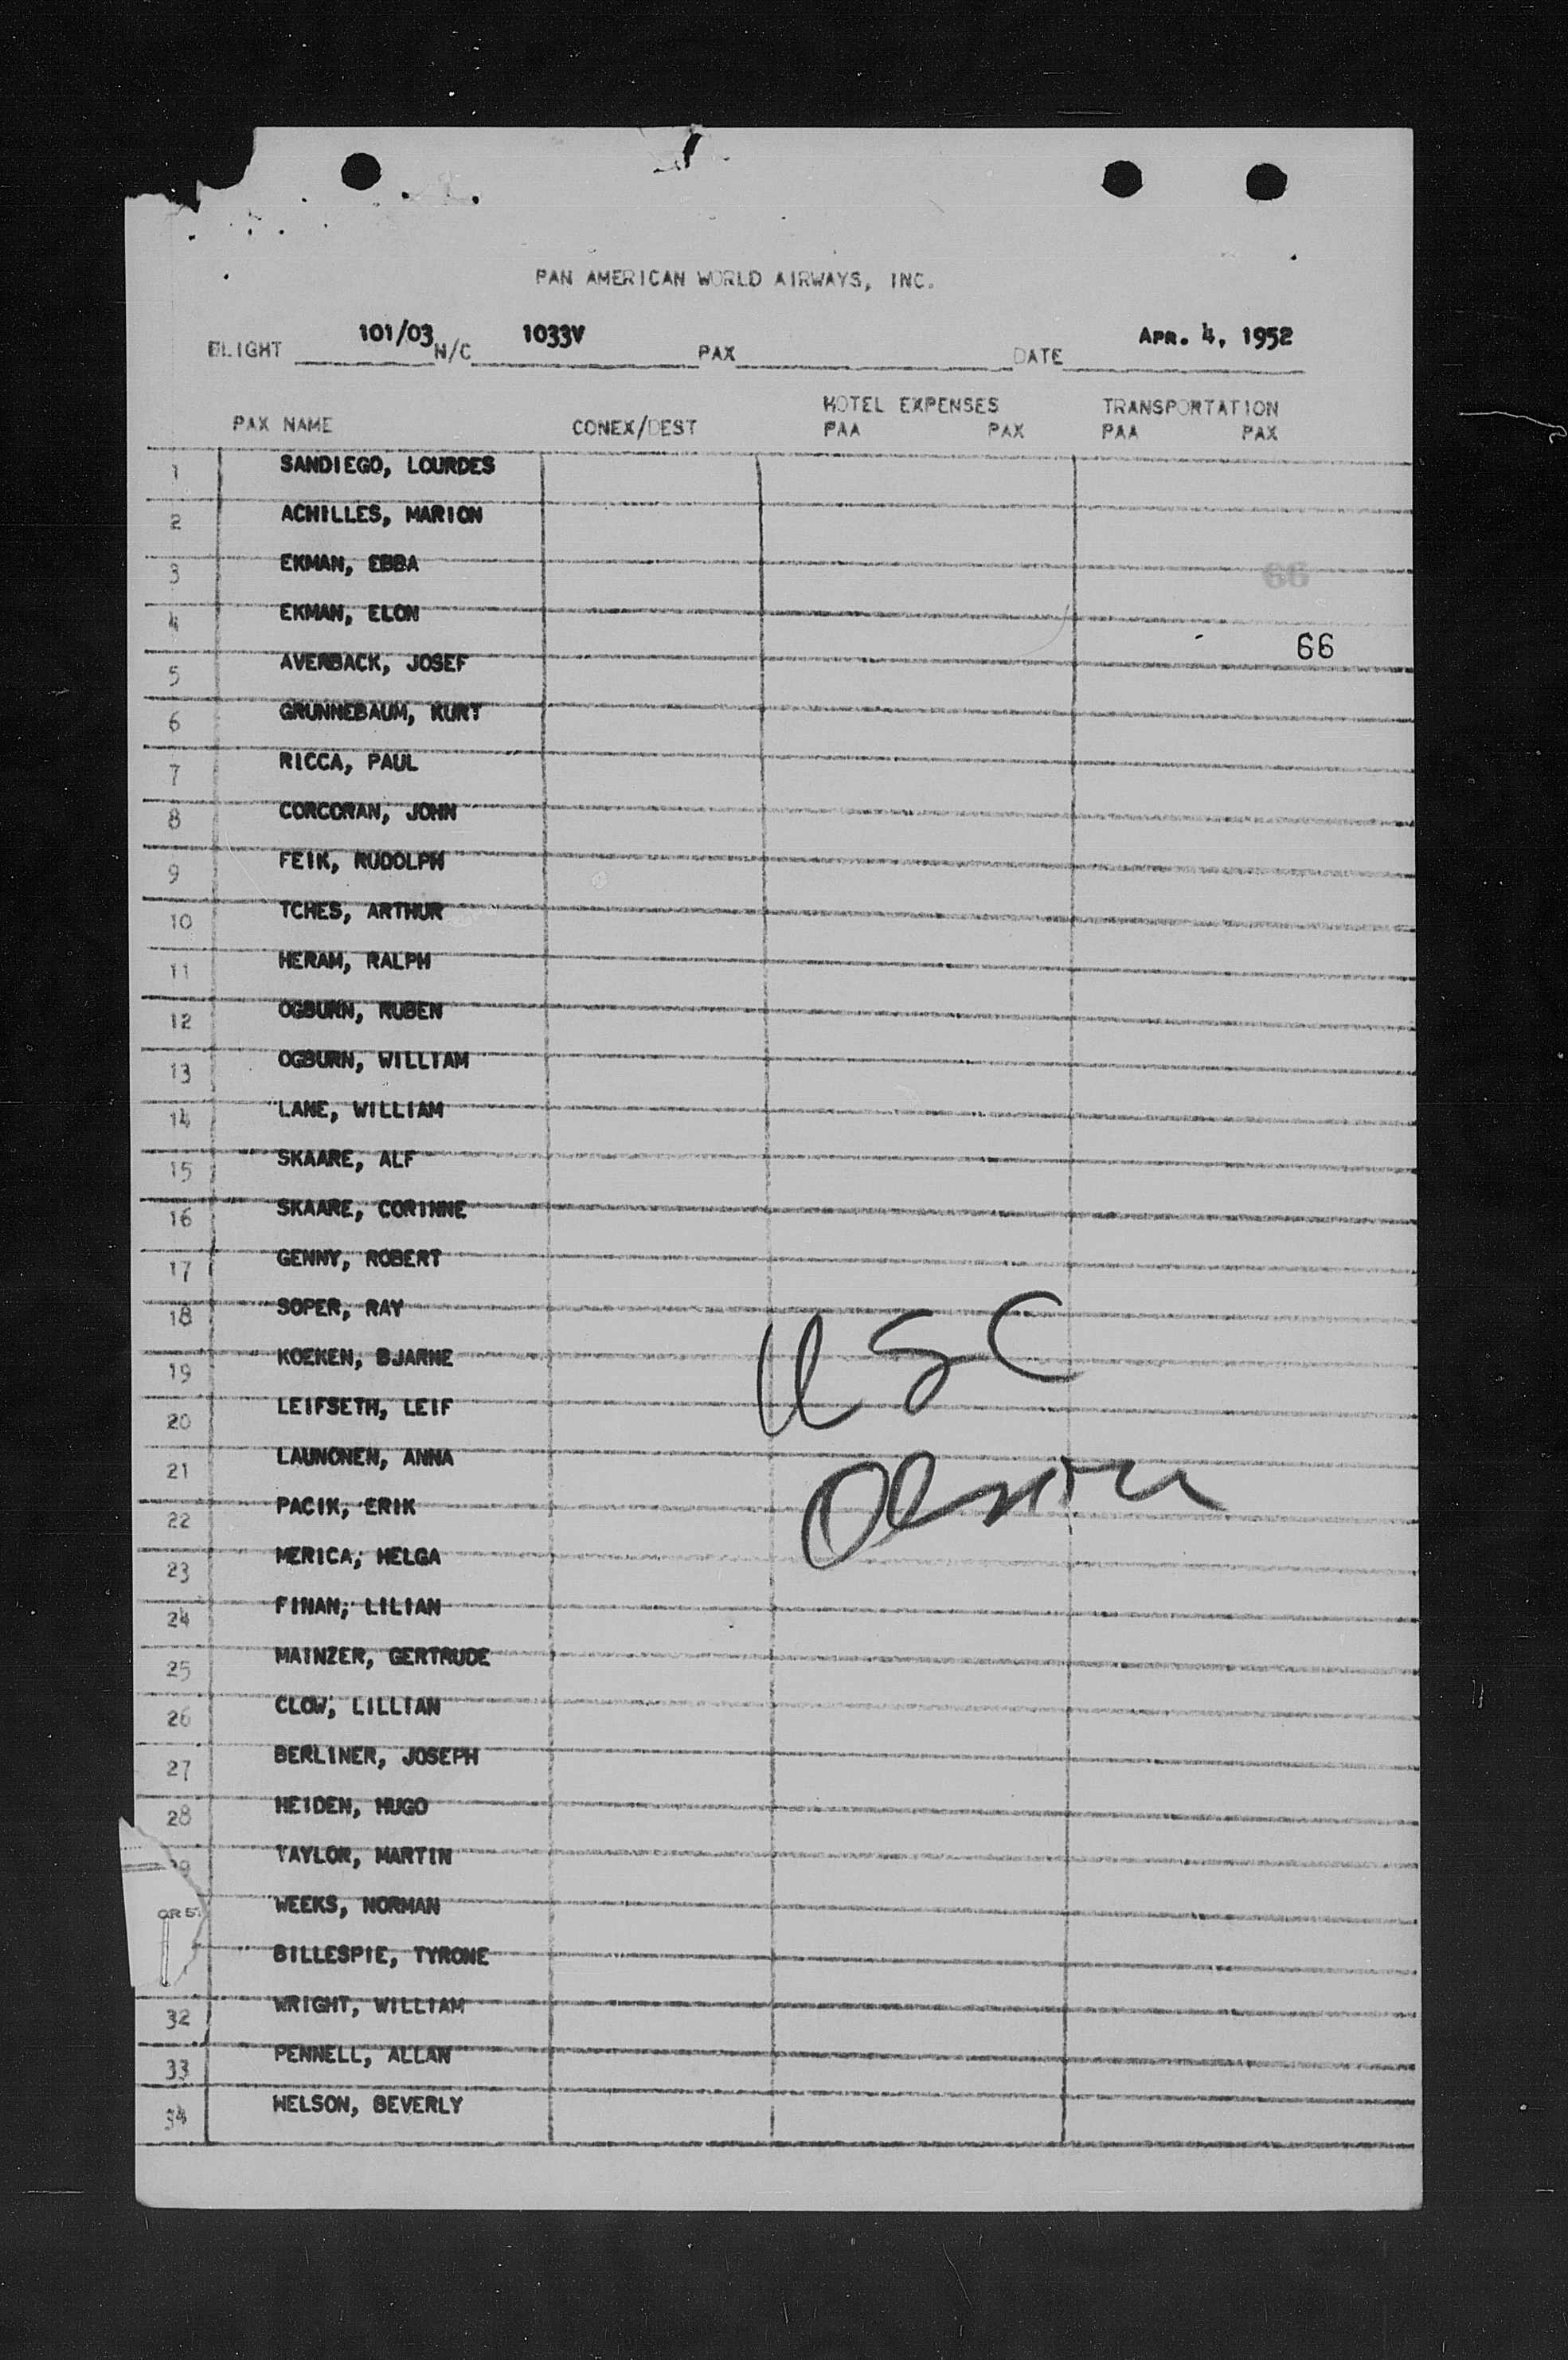 PAN AMERICAN WORLD AIRWAYS, INC.
FLIGHT 101/03 N/C 1033V PAX DATE APR. 4, 1952
HOTEL EXPENSES TRANSPORTATION
PAX NAME CONEX/DEST PAA PAX PAA PAX
1 SANDIEGO, LOURDES
2 ACHILLES, MARION
3 EKMAN, EBBA
66
4 EKMAN, ELON
66
5 AVERBACK, JOSEF
6 GRUNNEBAUM, KURT
7 RICCA, PAUL
8 CORCORAN, JOHN
9 FEIK, RUDOLPH
10 TCHES, ARTHUR
11 HERAM, RALPH
12 OGBURN, RUBEN
13 OGBURN, WILLIAM
14 LANE, WILLIAM
15 SKAARE, ALF
16 SKAARE, CORINNE
17 GENNY, ROBERT
18 SOPER, RAY
19 KOEKEN, BJARNE
USC
20 LEIFSETH, LEIF
21 LAUNONEN, ANNA
Olson
22 PACIK, ERIK
23 MERICA, HELGA
24 FINAN, LILIAN
25 MAINZER, GERTRUDE
26 CLOW, LILLIAN
27 BERLINER, JOSEPH
28 HEIDEN, HUGO
29 TAYLOR, MARTIN
WEEKS, NORMAN
BILLESPIE, TYRONE
32 WRIGHT, WILLIAM
33 PENNELL, ALLAN
34 WELSON, BEVERLY